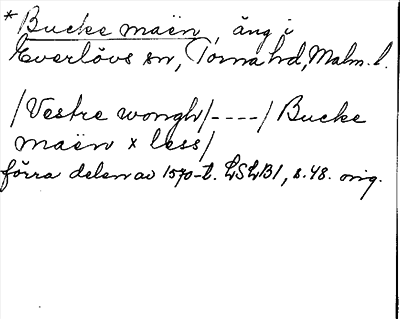 * Bucke maën, äng i
Everlövs sn, Torna hd, Malm. l.
/Vestre wongh/----/Bucke
maën x less/
förra delen av 1570-t. LSLB1, s.48. orig.